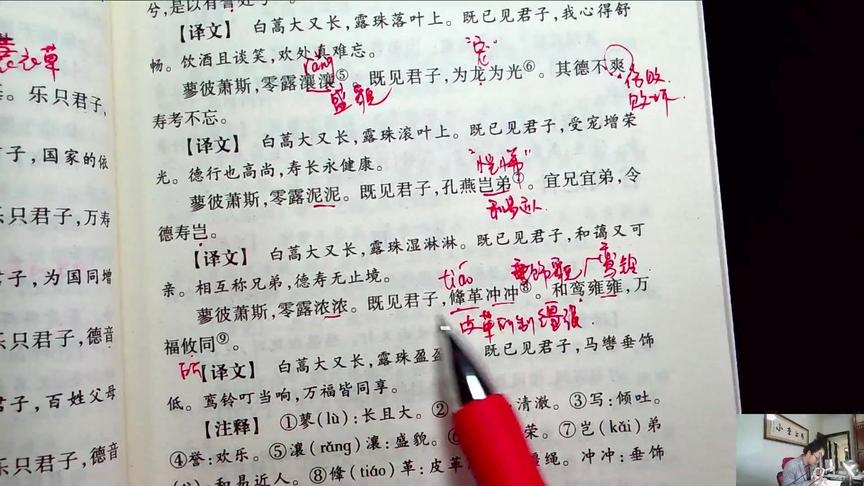 兮,是以有誉处
【译文】 白蒿大又长,露珠落叶上。既已见君子,我心得舒
畅。饮酒且谈笑,欢处真难忘。
蓼彼萧斯,零露瀼瀼⑤。既见君子,为龙为光⑥。其德不爽,
寿考不忘。
【译文】 白蒿大又长,露珠滚叶上。既已见君子,受宠增荣
光。德行也高尚,寿长永健康。
蓼彼萧斯,零露泥泥。既见君子,孔燕岂弟⑦。宜兄宜弟,令
德寿岂。
【译文】 白蒿大又长,露珠湿淋淋。既已见君子,和蔼又可
亲。相互称兄弟,德寿无止境。
蓼彼萧斯,零露浓浓。既见君子,鞗革冲冲⑧。和鸾雍雍,万
福攸同⑨。
【译文】 白蒿大又长,露珠盈盈 既已见君子,马辔垂饰
低。鸾铃叮当响,万福皆同享。
【注释】 ①蓼(lù):长且大。② 清澈。③写:倾吐。
④誉:欢乐。⑤瀼(rǎng)瀼:盛貌。⑥ 荣。⑦岂(kǎi)弟
和易近人。⑧鞗(tiáo)革:皮革 缰绳。冲冲:垂饰
rǎng
盛貌
"宠"
败坏
"恺悌"
和易近人
tiáo
垂饰貌
鸾铃
皮革所制缰绳
所
草
。乐只君子,
子,国家的依
乐只君子,万寿
子,为国同增
乐只君子,德音
子,百姓父母
乐只君子,德音